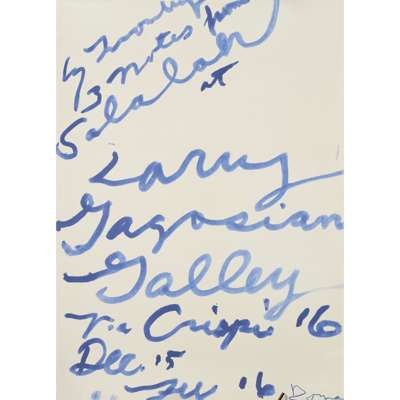 Cy Twombly
3 Notes from
Salalah at
Larry
Gagosian
Galley
Via Crispi 16
Dec. 15
16
Roma